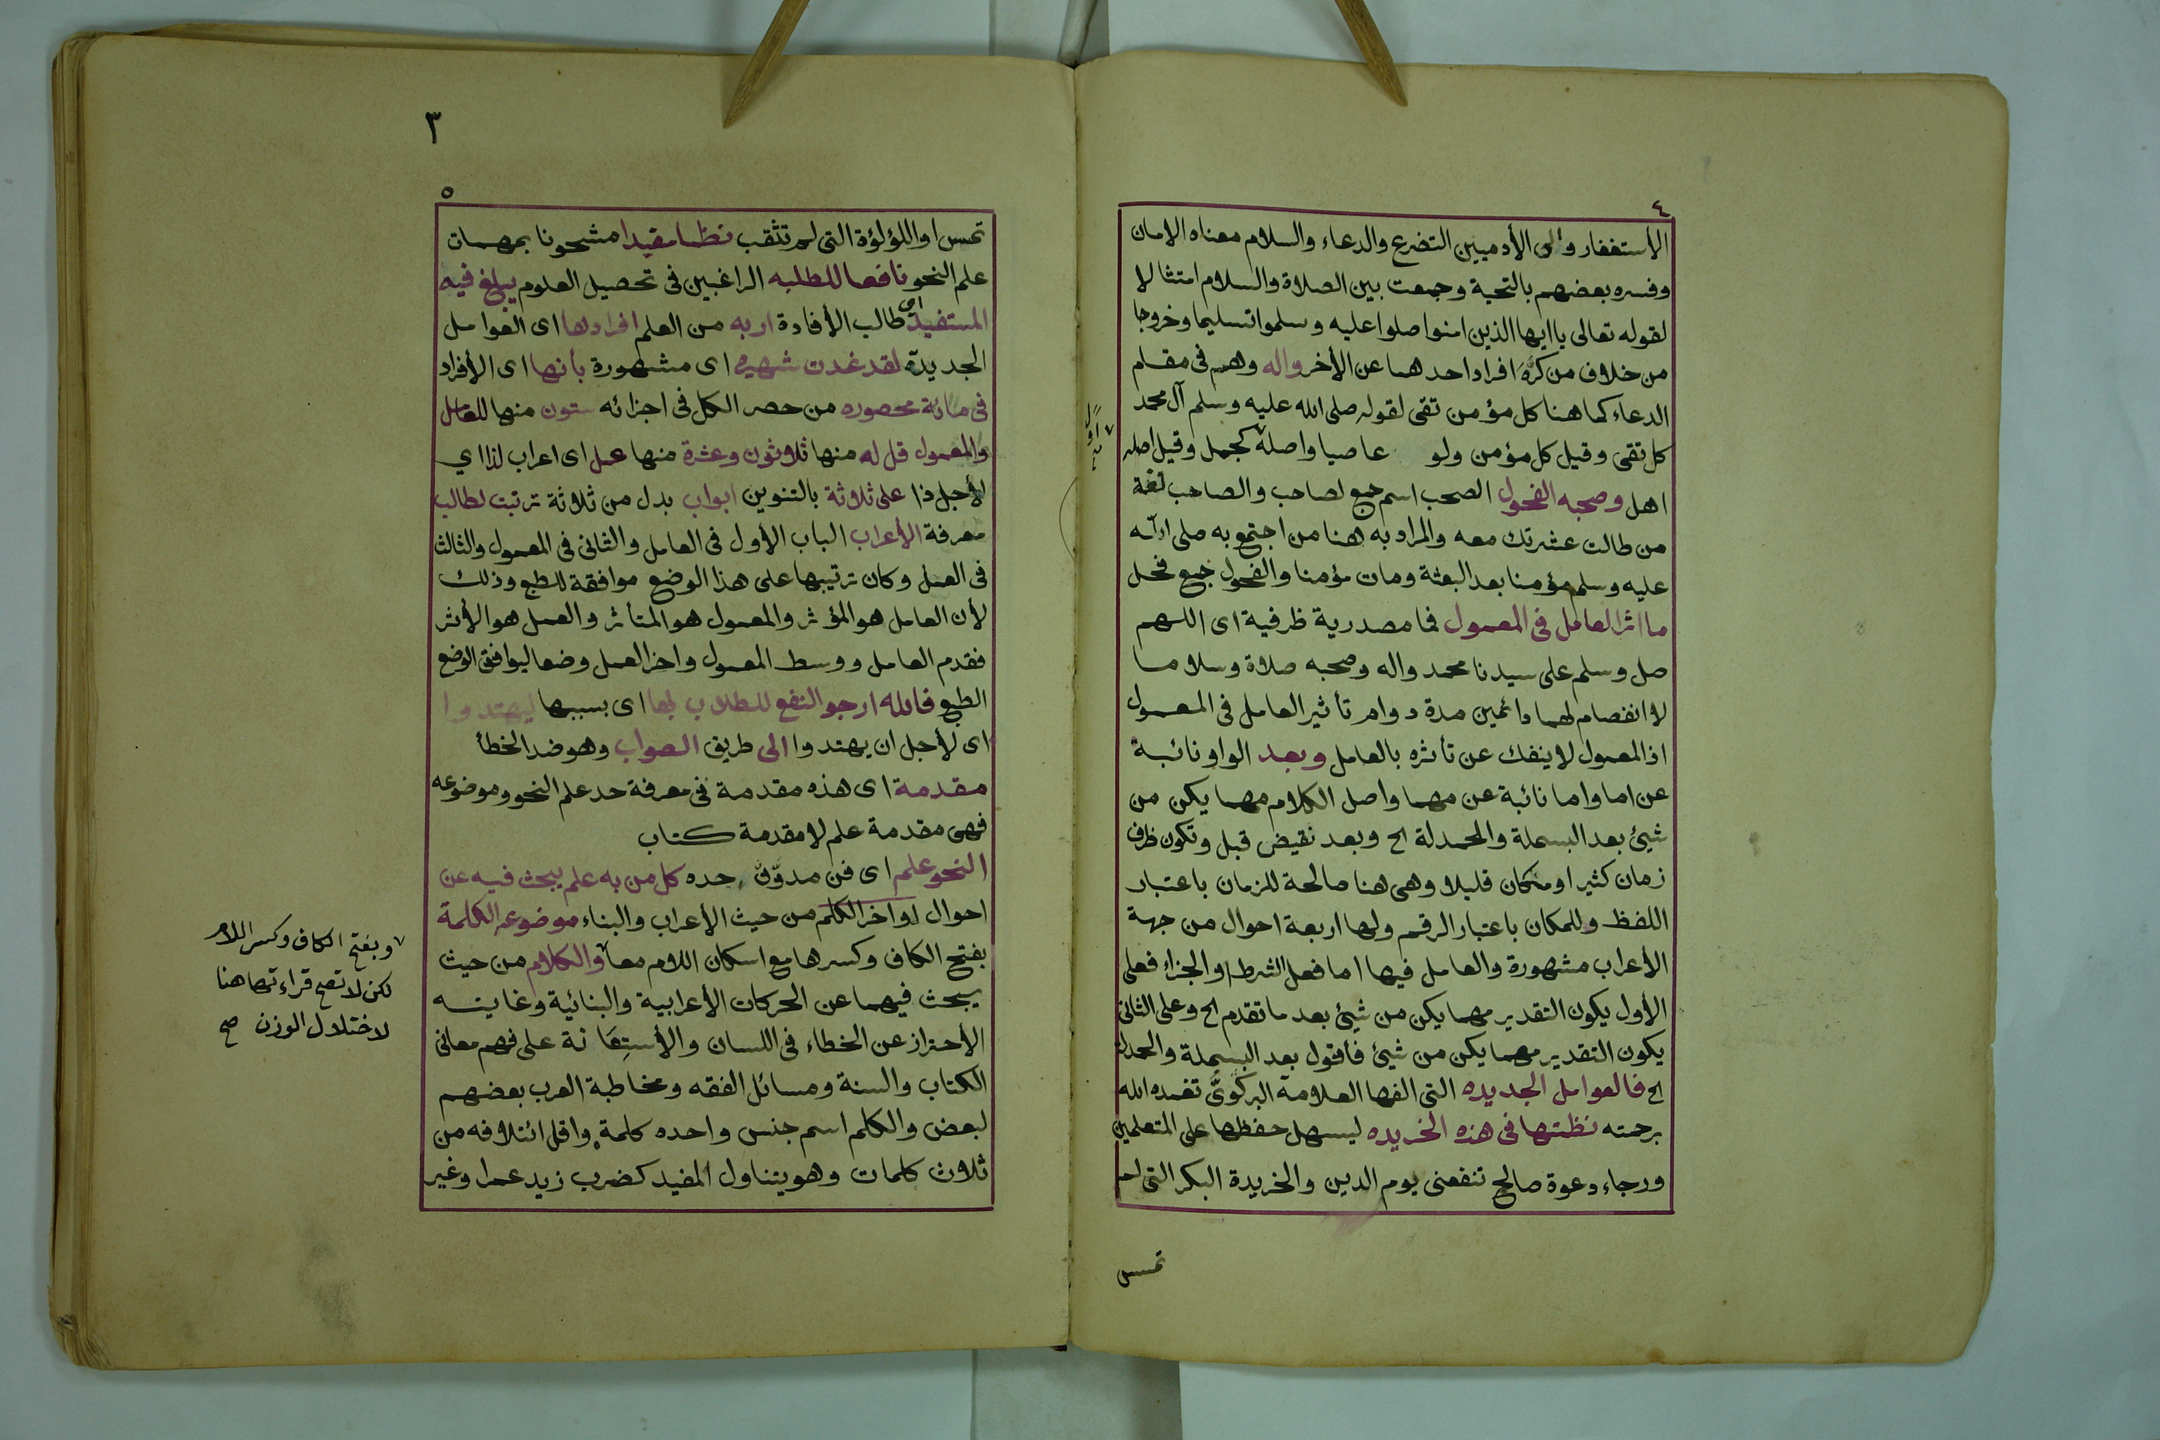 ٤
الأستغفار والى الأدميين التضرع والدعاء والسلام معناه الامان
وفسره بعضهم بالتحية وجمعت بين الصلاة والسلام امتثالا
لقوله تعالى ياايها الذين امنوا صلوا عليه وسلموا تسليما وخروجا
من خلاف من كره افراد احدهما عن الأخر واله وهم فى مقام
الدعاء كما هنا كل مؤمن تقى لقوله صلى الله عليه وسلم آل محمد
كل تقى وقيل كل مؤمن ولو عاصيا واصله كجمل وقيل اصله
اهل وصحبه الفحول الصحب اسم جمع لصاحب والصاحب لغة
من طالت عشرتك معه والمراد به هنا من اجتمع به صلى الله
عليه وسلم مؤمنا بعد البعثة ومات مؤمنا والفحول جمع فحل
ما اثر العامل فى المعمول فما مصدرية ظرفية اى اللهم
صل وسلم على سيدنا محمد واله وصحبه صلاة وسلاما
لا انفصام لهما دائمين مدة دوام تأثير العامل فى المعمول
اذ المعمول لا ينفك عن تأثره بالعامل وبعد الواو نائبة
عن اما واما نائبة عن مهما واصل الكلام مهما يكن من
شيئ بعد البسملة والحمدلة الخ وبعد نقيض قبل وتكون ظرف
زمان كثيرا ومكان قليلا وهى هنا صالحة للزمان باعتبار
اللفظ وللمكان باعتبار الرقم ولها اربعة احوال من جهة
الأعراب مشهورة والعامل فيها اما فعل الشرط او الجزاء فعلى
الأول يكون التقدير مهما يكن من شيئ بعد ما تقدم الخ وعلى الثانى
يكون التقدير مهما يكن من شيئ فأقول بعد البسملة والحمدلة
الخ فالعوامل الجديده التى الفها العلامة البركوىّ تغمده الله
برحمته نظمتها فى هذه الخريده ليسهل حفظها على المتعلمين
ورجاء دعوة صالح تنفعنى يوم الدين والخريدة البكر التى لم
تمسس
٣
٥
تمسس او اللؤلؤة التى لم تثقب نظما مفيدا مشحونا بمهمات
علم النحو نافعا للطلبه الراغبين فى تحصيل العلوم يبلغ فيه
المستفيد اى طالب الأفادة اربه من العلم افرادها اى العوامل
الجديدة لقد غدت شهيره اى مشهورة بأنها اى الأفراد
فى مائة محصوره من حصر الكل فى اجزائه ستون منها للعامل
والمعمول قل له منها ثلاثون وعشرة منها عمل اى اعراب لذا اي
لأجل ذا على ثلاثة بالتنوين ابواب بدل من ثلاثة ترتبت لطالب
معرفة الأعراب الباب الأول فى العامل والثانى فى المعمول والثالث
فى العمل وكان ترتيبها على هذا الوضع موافقة للطبع وذلك
لأن العامل هو المؤثر والمعمول هو المتأثر والعمل هو الأثر
فقدم العامل ووسط المعمول واخر العمل وضعا ليوافق الوضع
الطبع فالله ارجو النفع للطلاب بها اى بسببها ليهتدوا
اى لأجل ان يهتدوا الى طريق الصواب وهو ضد الخطأ
مقدمة اى هذه مقدمة فى معرفة حد علم النحو وموضوعه
فهى مقدمة علم لا مقدمة كتاب
النحو علم اى فن مدوّن حده كل من به علم يبحث فيه عن
احوال اواخر الكلم من حيث الأعراب والبناء موضوعه الكلمة
بفتح الكاف وكسرها مع اسكان اللام معا والكلام من حيث
يبحث فيهما عن الحركات الأعرابية والبنائية وغايته
الأحتراز عن الخطاء فى اللسان والأستعانة على فهم معانى
الكتاب والسنة ومسائل الفقه ومخاطبة العرب بعضهم
لبعض والكلم اسم جنس واحده كلمة واقل ائتلافه من
ثلاث كلمات وهو يتناول المفيد كضرب زيد عمرا وغير
وبفتح الكاف وكسر اللام
لكن لا تصح قراءتها هنا
لاختلال الوزن صح